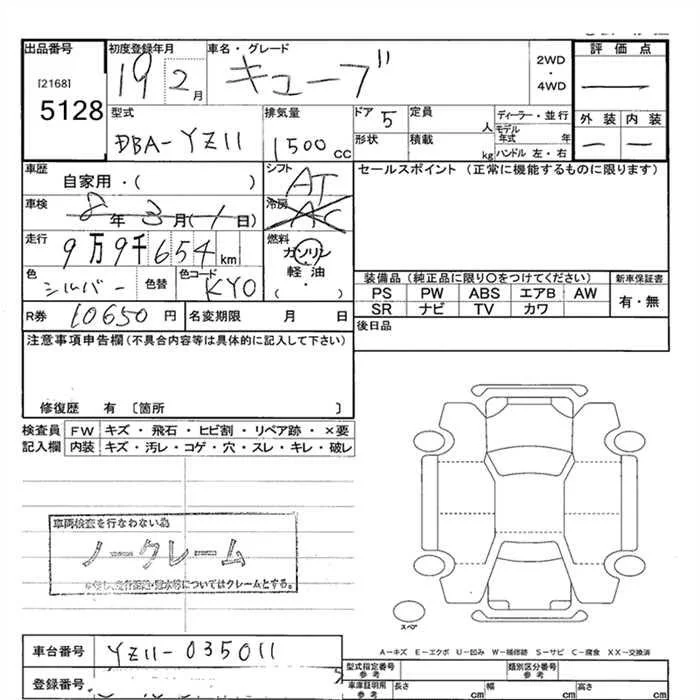 出品番号 初度登録年月 車名・グレード 評価点
[2168] 5128 19 2月 キューブ 2WD・4WD
外装 内装
型式 排気量 ドア 5 定員 人 ディーラー・並行
DBA-YZ11 1500 CC 形状 積載 kg モデル年式 年
ハンドル 左・右
車歴 自家用・( ) シフト AT セールスポイント (正常に機能するものに限ります)
車検 8年 3月(1日) 冷房 AC
走行 9万9千654 km 燃料 ガソリン・軽油・( )
色 シルバー 色替 色コード KY0
装備品 (純正品に限り○をつけてください) 新車保証書
PS PW ABS エアB AW 有・無
SR ナビ TV カワ
R券 10650 円 名変期限 月 日 後日品
注意事項申告欄(不具合内容等は具体的に記入して下さい)
修復歴 有 〔箇所 〕
検査員 FW キズ・飛石・ヒビ割・リペア跡・×要
記入欄 内装 キズ・汚レ・コゲ・穴・スレ・キレ・破レ
車両検査を行なわない為
ノークレーム
についてはクレームとする。
スペア
A-キズ E-エクボ U-凹み W-補修跡 S-サビ C-腐食 XX-交換済
車台番号 YZ11-035011
型式指定番号 参考 類別区分番号 参考
登録番号
車庫証明用 参考 長さ cm 幅 cm 高さ cm